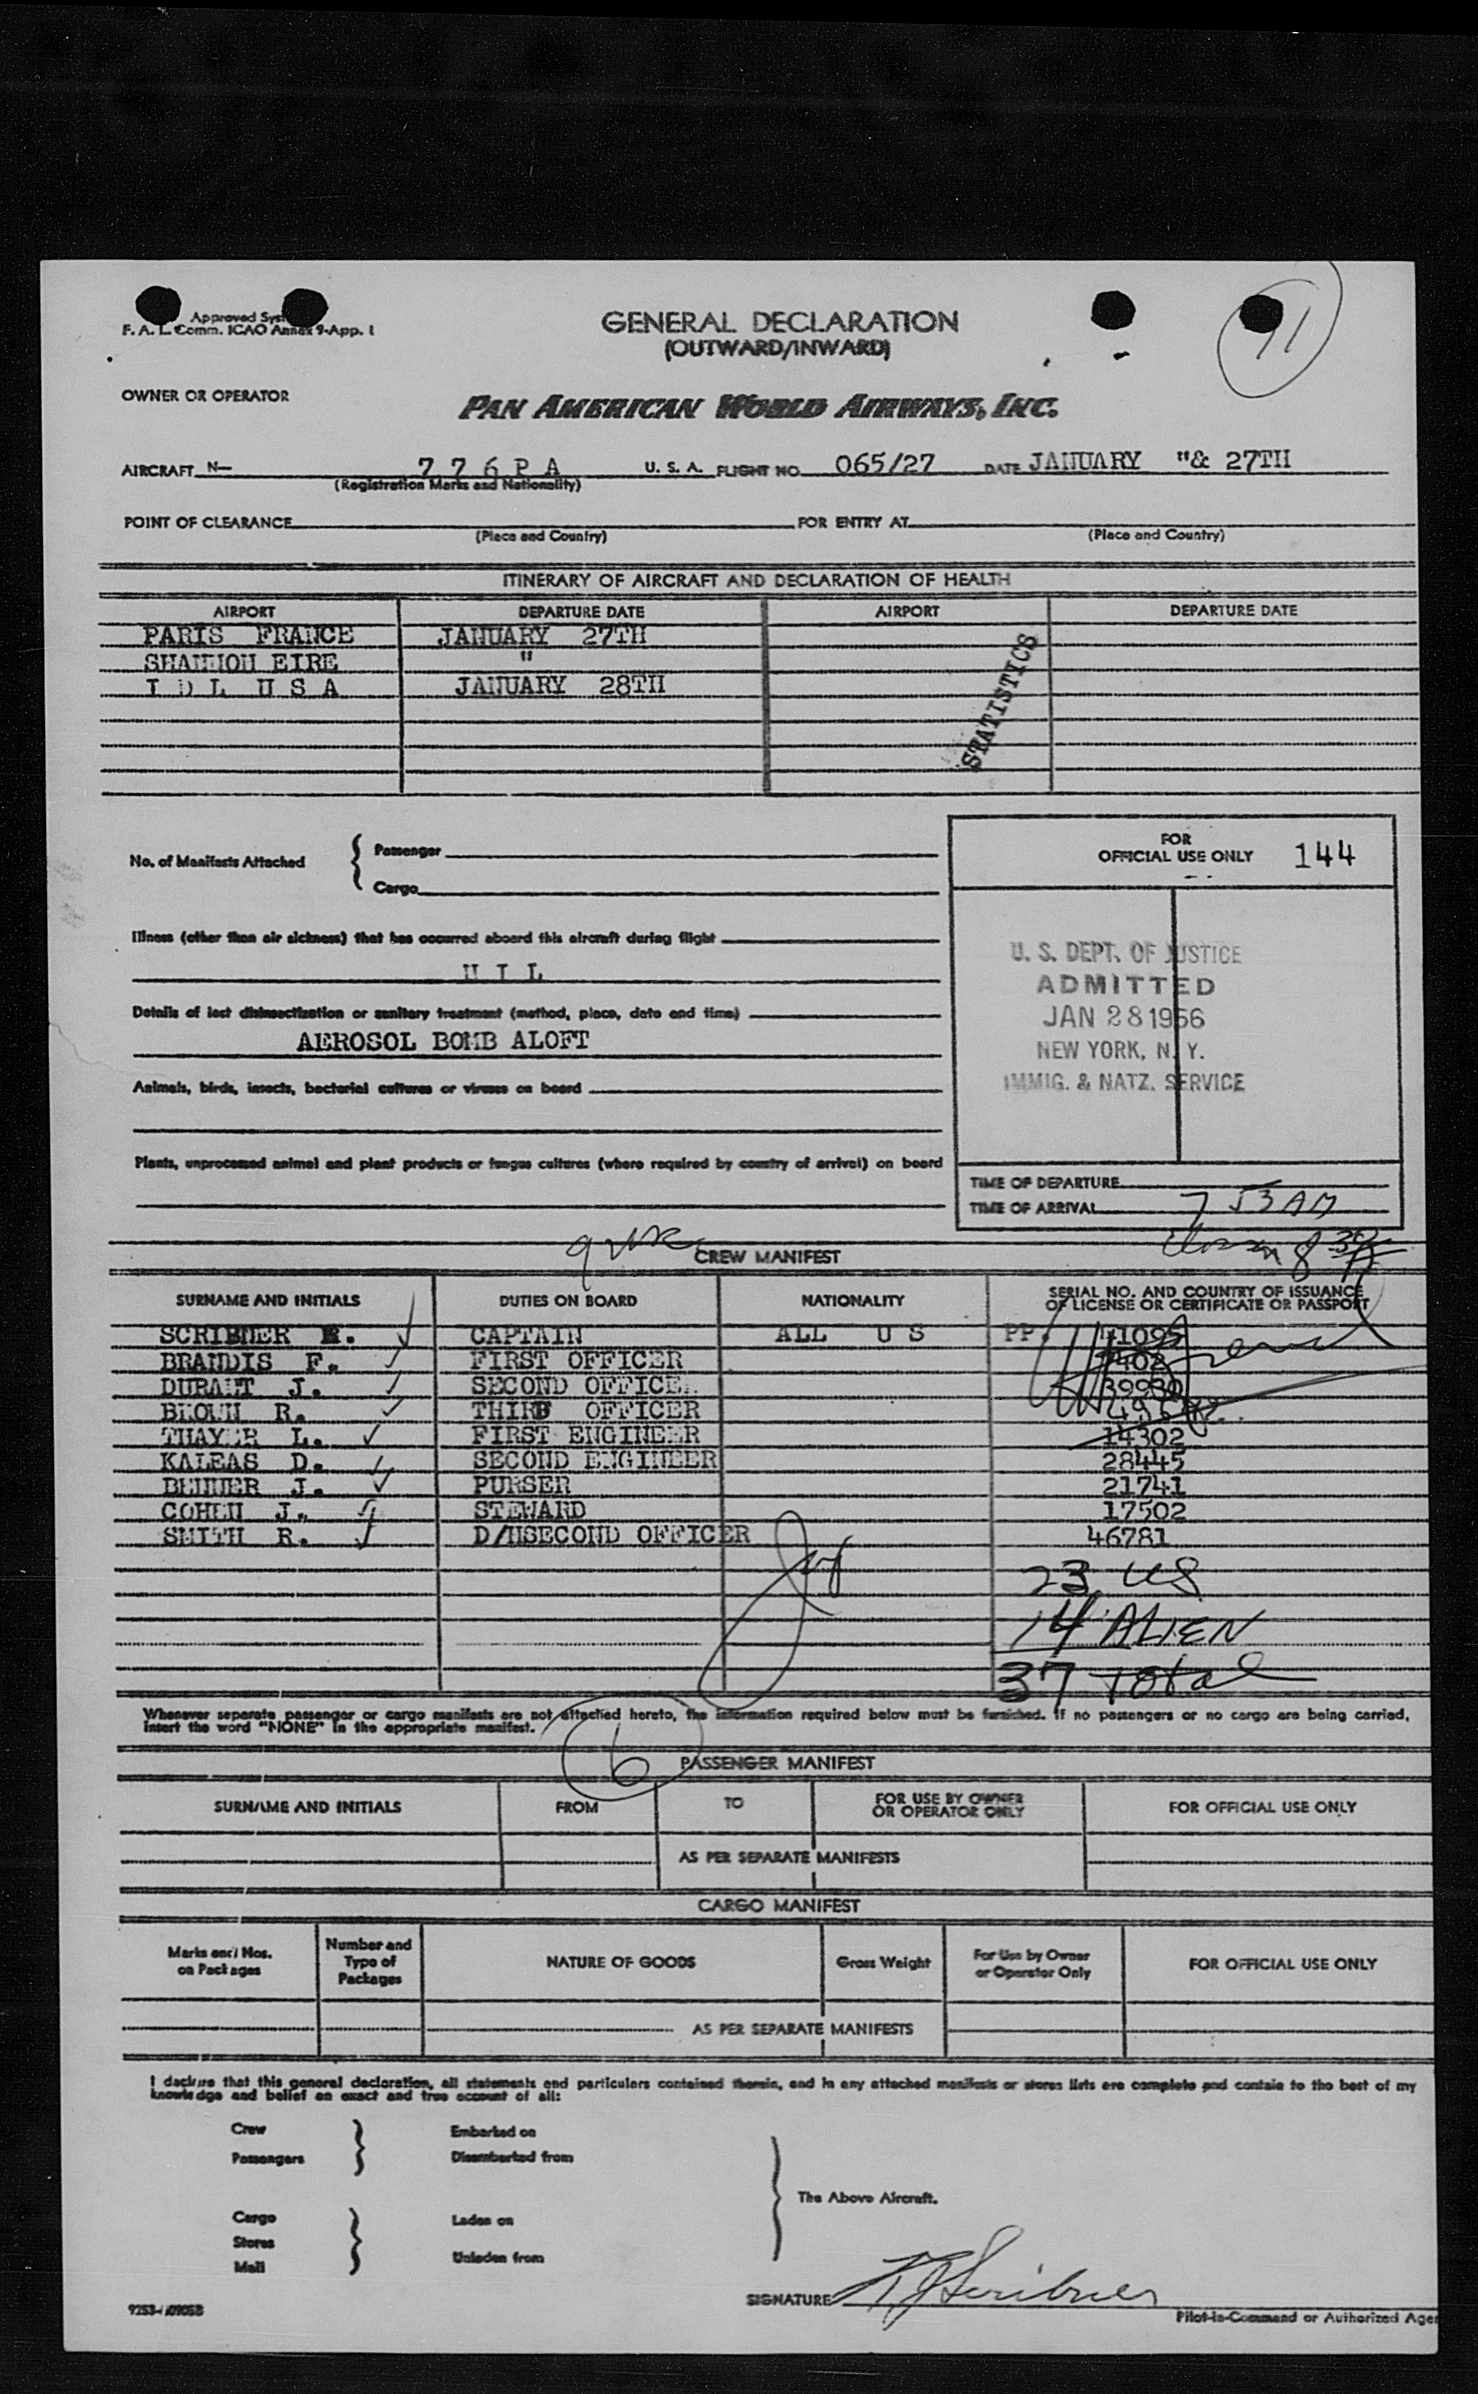 Approved Sys
F. A. L. Comm. ICAO Annex 9-App. 1
11
GENERAL DECLARATION
(OUTWARD/INWARD)
OWNER OR OPERATOR
PAN AMERICAN WORLD AIRWAYS, INC.
AIRCRAFT N- 776PA U. S. A. FLIGHT NO. 065/27 DATE JANUARY "& 27TH
(Registration Marks and Nationality)
POINT OF CLEARANCE FOR ENTRY AT
(Place and Country) (Place and Country)
ITINERARY OF AIRCRAFT AND DECLARATION OF HEALTH
AIRPORT DEPARTURE DATE AIRPORT DEPARTURE DATE
PARIS FRANCE JANUARY 27TH
SHANNON EIRE "
I D L U S A JANUARY 28TH
STATISTICS
No. of Manifests Attached { Passenger
Cargo
FOR
OFFICIAL USE ONLY 144
Illness (other than air sickness) that has occurred aboard this aircraft during flight
N I L
Details of last disinsectization or sanitary treatment (method, place, date and time)
AEROSOL BOMB ALOFT
Animals, birds, insects, bacterial cultures or viruses on board
Plants, unprocessed animal and plant products or fungus cultures (where required by country of arrival) on board
U. S. DEPT. OF JUSTICE
ADMITTED
JAN 28 1956
NEW YORK, N. Y.
IMMIG. & NATZ. SERVICE
TIME OF DEPARTURE
TIME OF ARRIVAL 7 53 AM
CREW MANIFEST
SURNAME AND INITIALS DUTIES ON BOARD NATIONALITY SERIAL NO. AND COUNTRY OF ISSUANCE
OF LICENSE OR CERTIFICATE OR PASSPORT
SCRIBNER CAPTAIN ALL U S PP. 41095
BRANDIS F. FIRST OFFICER
DURANT J. SECOND OFFICER
BROWN R. THIRD OFFICER
THAYER L. FIRST ENGINEER 14302
KALEAS D. SECOND ENGINEER 28445
BENNER J. PURSER 21741
COHEN J. STEWARD 17502
SMITH R. D/HSECOND OFFICER 46781
23 US
14 ALIEN
37 Total
Whenever separate passenger or cargo manifests are not attached hereto, the information required below must be furnished. If no passengers or no cargo are being carried,
insert the word "NONE" in the appropriate manifest.
6
PASSENGER MANIFEST
SURNAME AND INITIALS FROM TO FOR USE BY OWNER
OR OPERATOR ONLY FOR OFFICIAL USE ONLY
AS PER SEPARATE MANIFESTS
CARGO MANIFEST
Marks and Nos.
on Packages Number and
Type of
Packages NATURE OF GOODS Gross Weight For Use by Owner
or Operator Only FOR OFFICIAL USE ONLY
AS PER SEPARATE MANIFESTS
I declare that this general declaration, all statements and particulars contained therein, and in any attached manifests or stores lists are complete and contain to the best of my
knowledge and belief an exact and true account of all:
Crew Embarked on
Passengers Disembarked from
The Above Aircraft.
Cargo Laden on
Stores
Mail Unladen from
SIGNATURE Scribner
Pilot-in-Command or Authorized Age